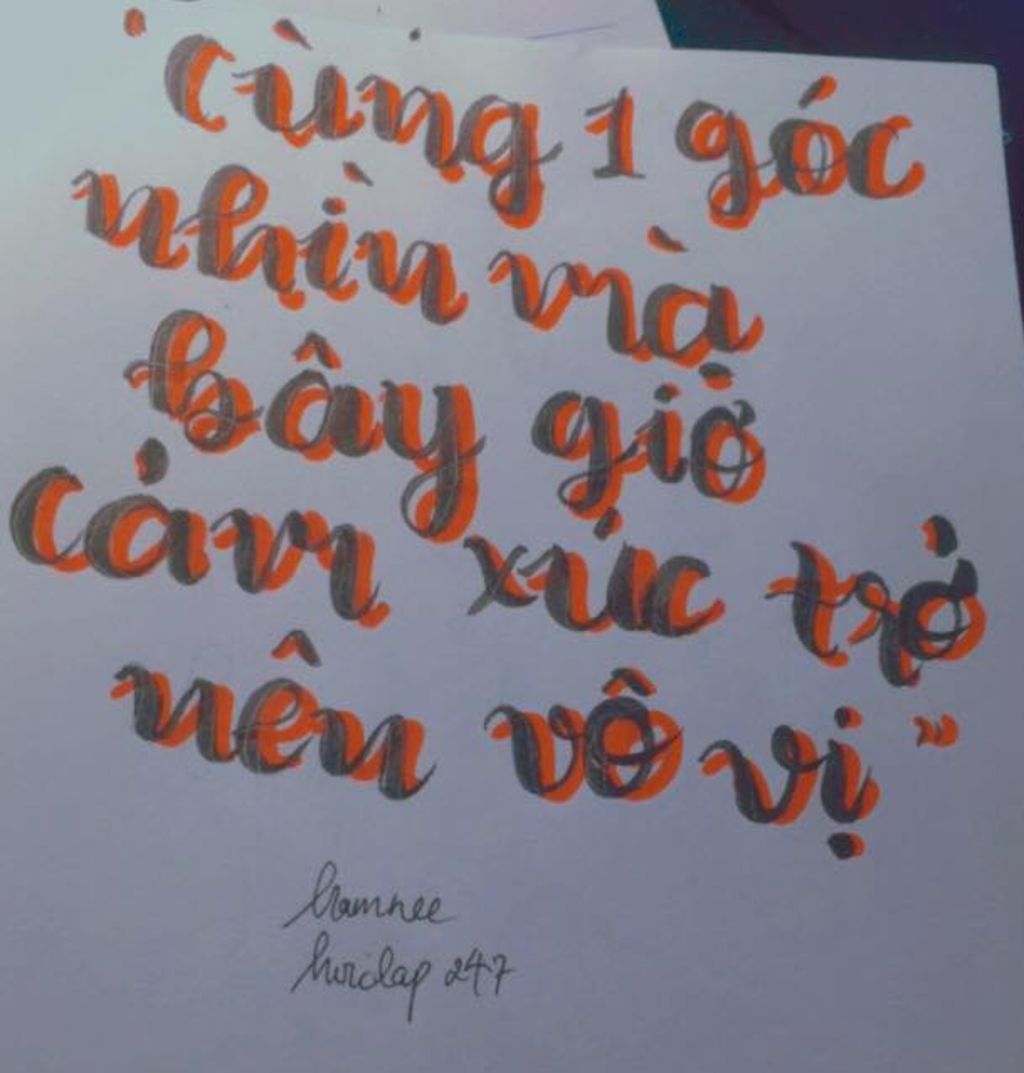 "cùng 1 góc
nhìn mà
bây giờ
cảm xúc trở
nên vô vị"
hoidap 247